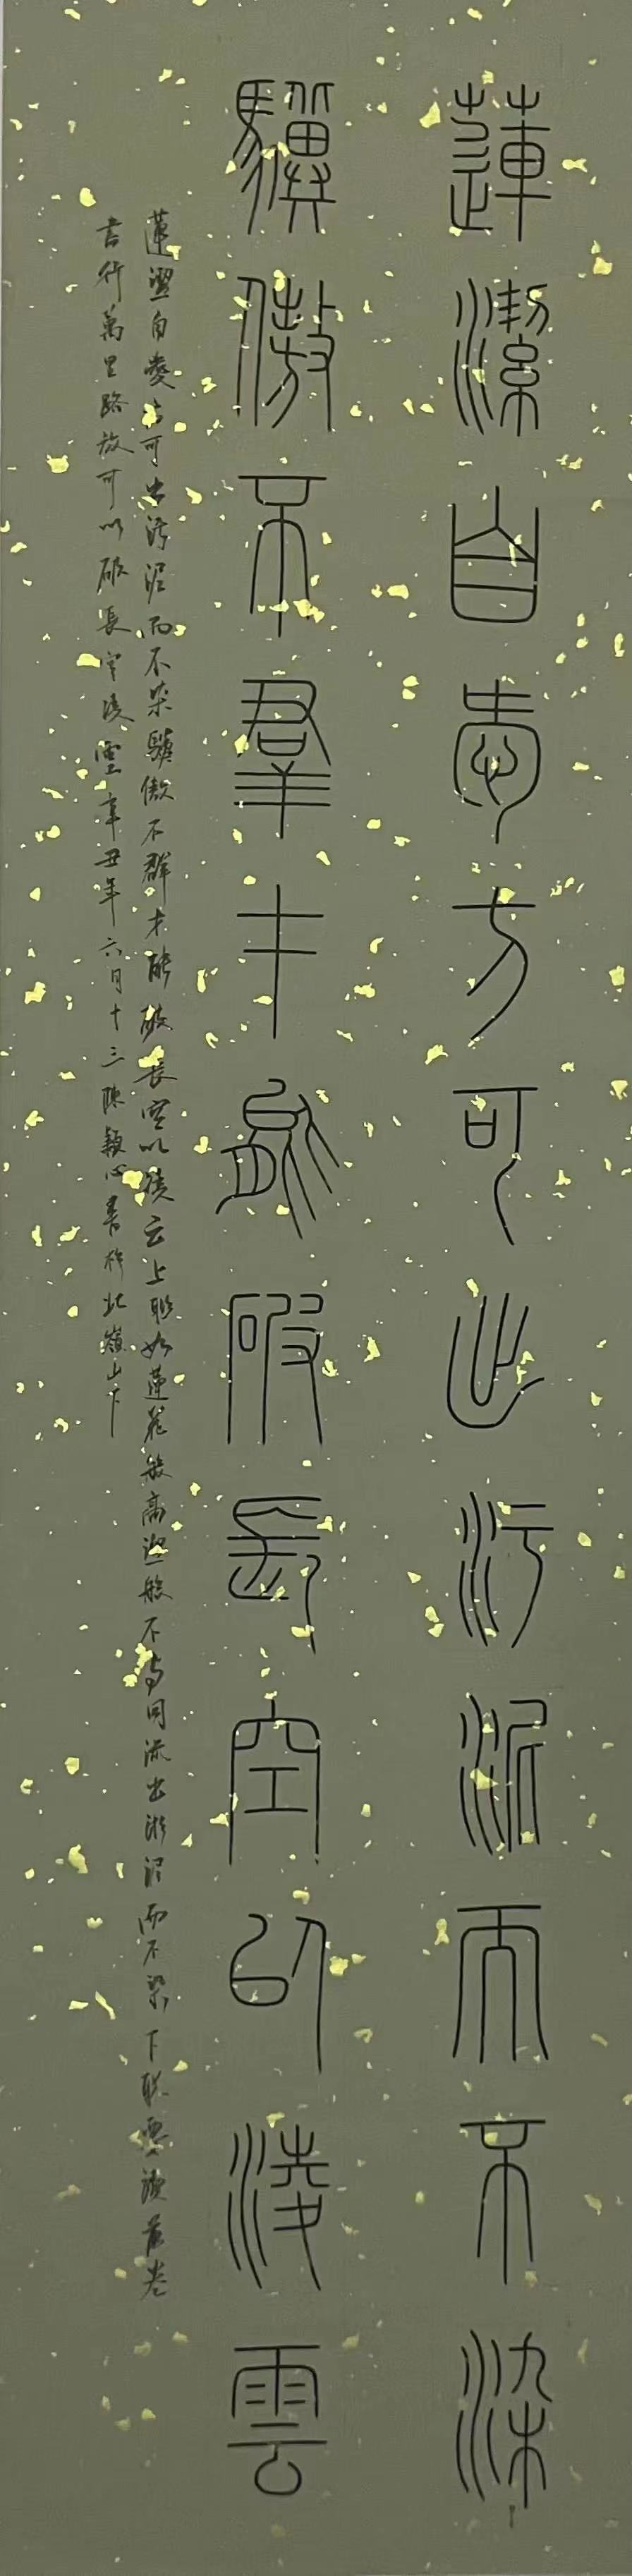 蓮潔自愛方可出污泥而不染
驥傲不羣才能破長空以淩雲
蓮潔自愛方可出污泥而不染驥傲不群才能破長空以凌云上联如蓮花般高潔般不与同流出淤泥而不染下联要讀萬卷
書行萬里路放可以破長空凌雲辛丑年六月十三陳穎心書於北嶺山下